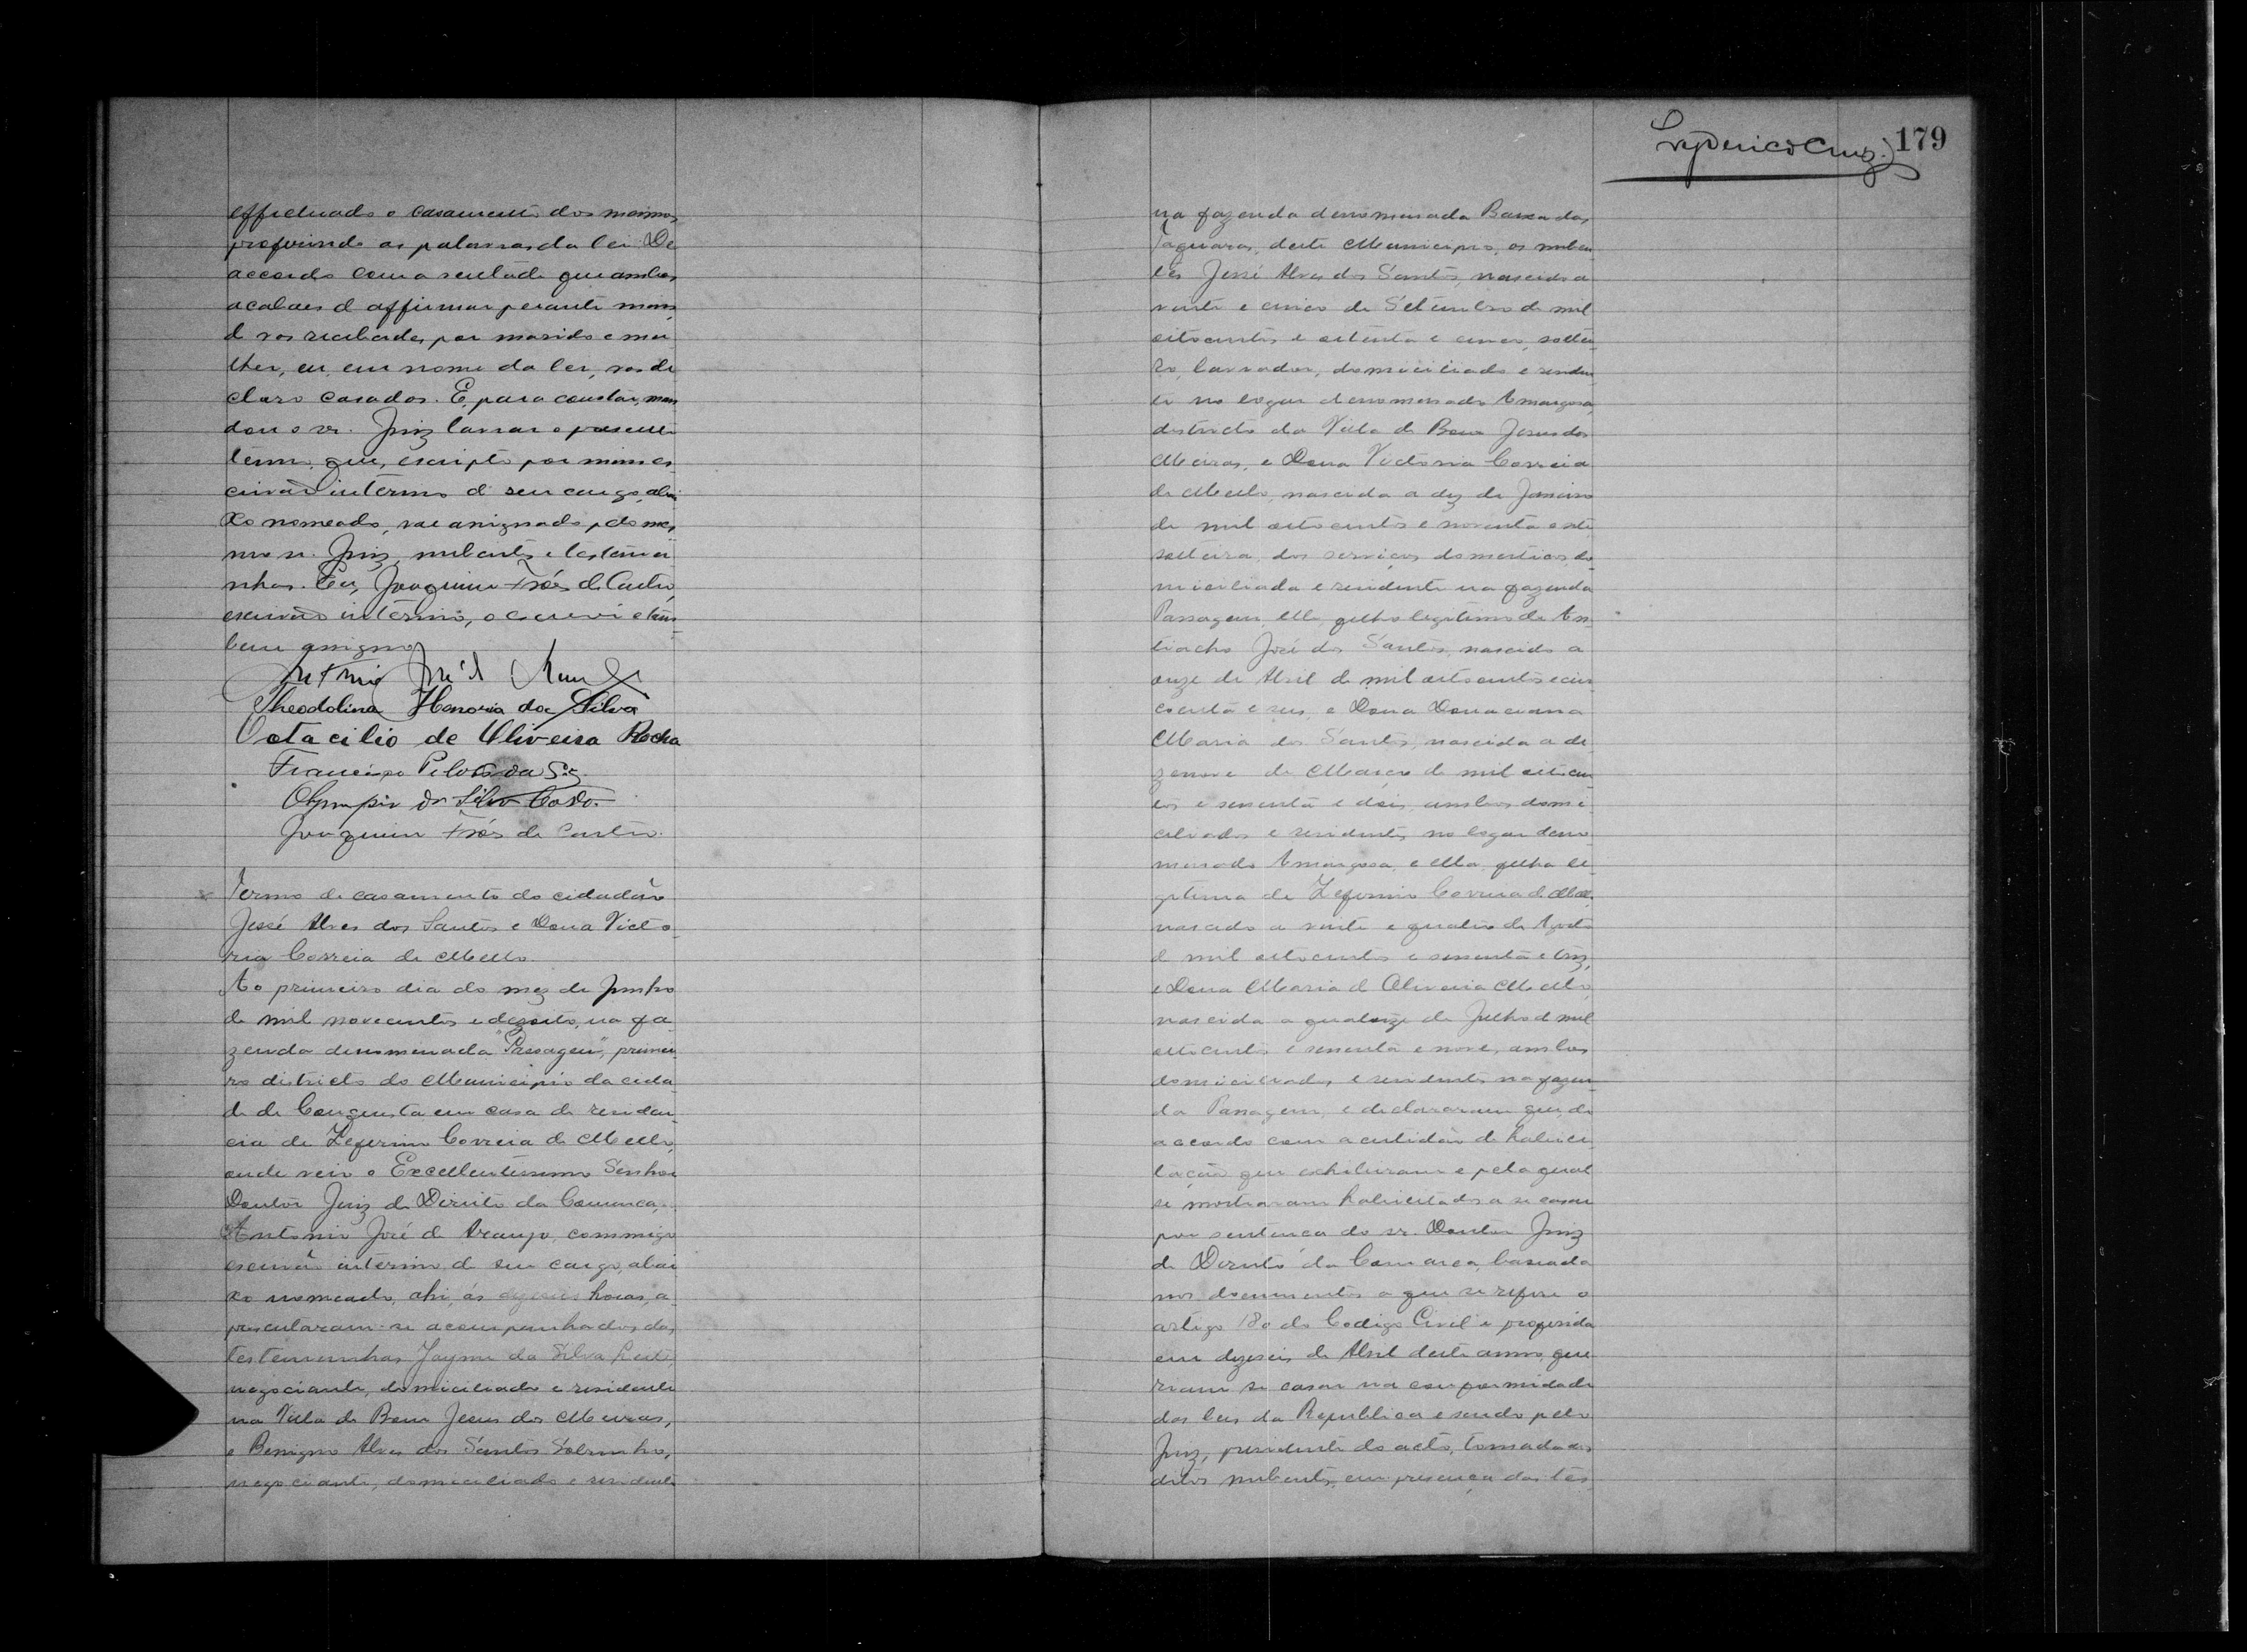 effectuado o casamento dos mesmos,
proferindo as palavras da lei: De
accordo com a vontade que ambos
acabaes d affirmar perante mim,
d vos receberdes por marido e mu
lher, eu, em nome da lei, vos de
claro casados. E, para constar, man
dou o sr. Juiz lavrar o presente
termo, que, escripto por mim es
crivão interino d seu cargo, abai
xo nomeado, vae assignado pelo mes
mo sr. Juiz, nubentes e testemu
nhas. Eu, Joaquim Fróes de Castro,
escrivão interino, o escrevi e tam
bem assigno
Antonio José d Araujo
Theodolina Honoria da Silva
Octacilio de Oliveira Rocha
Francisco
Olympio da Silva
Joaquim Fróes de Castro.
Termo de casamento do cidadão
Jessé Alves dos Santos e Dona Victo
ria Correia de Mello.
Ao primeiro dia do mez de Junho
de mil novecentos e dezoito, na fa
zenda denominada "Passagem", primei
ro districto do Municipio da cida
de de Conquista em casa de residen
cia de Zeferino Correia de Mello,
onde veio o Excellentissimo Senhor
Doutor Juiz de Direito da Comarca,
Antonio José d Araujo, commigo
escrivão interino d seu cargo, abai
xo nomeado, ahi, ás horas, a
presentaram-se acompanhados das
testemunhas Jayme da Silva Leite,
negociante, domiciliado e residente
na Villa de Bom Jesus dos Meiras,
e Benigno Alves dos Santos Sobrinho,
negociante, domiciliado e residente
Cruz. 179
na fazenda denominada Baixa das
Taquaras, deste Municipio, os nuben
tes Jessé Alves dos Santos, nascido a
vinte e cinco de Setembro de mil
oitocentos e oitenta e cinco, soltei
ro, lavrador, domiciliado e residen
te no logar denominado Amargosa,
districto da Villa de Bom Jesus dos
Meiras, e Dona Victoria Correia
de Mello, nascida a dez de Janeiro
de mil oitocentos e noventa e sete
solteira, dos serviços domesticos, do
miciliada e residente na fazenda
Passagem, elle, filho legitimo de An
tiocho José dos Santos, nascido a
onze de Abril de mil oitocentos e cin
coenta e seis, e Dona Donaciana
Maria dos Santos, nascida a de
zenove de Março de mil oitocen
tos e sessenta e dois, ambos domi
ciliados e residentes no logar deno
minado Amargosa, e ella, filha le
gitima de Zeferino Correia d Mello,
nascido a vinte e quatro de Agosto
d mil oitocentos e sessenta e tres,
e Dona Maria d Oliveira Mello,
nascida a quatorze de Julho d mil
oitocentos e sessenta e nove, ambos
domiciliados e residentes na fazen
da Passagem, e declararam que, de
accordo com a certidão de habili
tação que exhibiram e pela qual
se mostraram habilitados a se casar
por sentença do sr. Doutor Juiz
de Direito da Comarca, baseada
nos documentos a que se refere o
artigo 180 do Codigo Civil e proferida
em dezeseis de Abril deste anno, que
riam se casar na conformidade
das leis da Republica e sendo pelo
Juiz, presidente do acto, tomada aos
ditos nubentes, em presença das tes